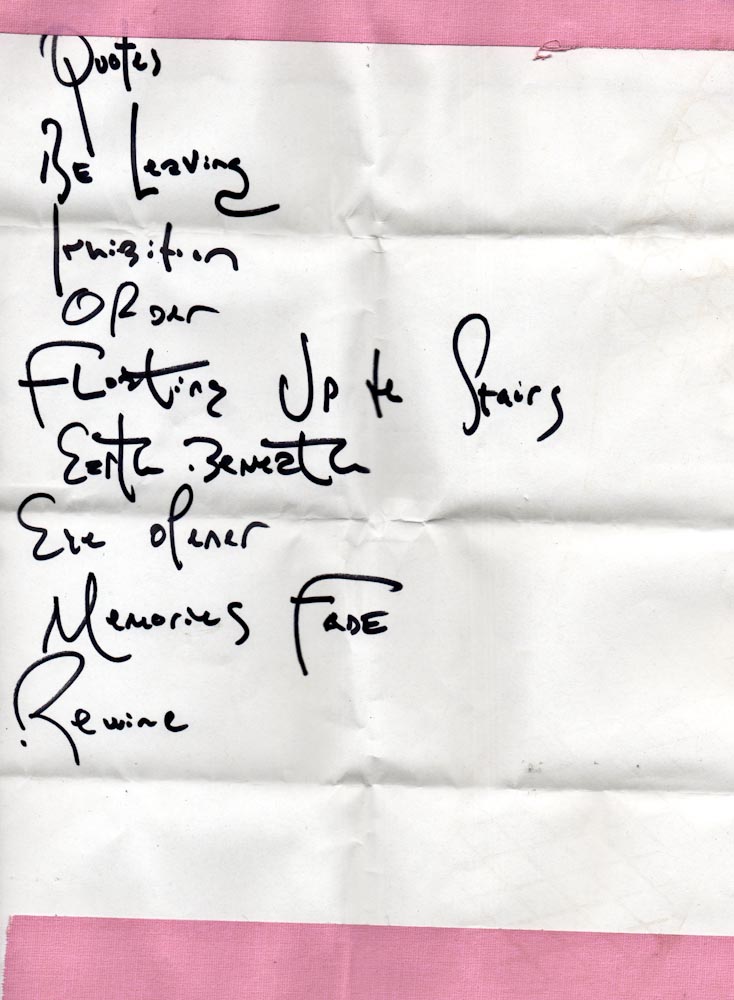 Quotes
Be Leaving
Inhibition
Order
Floating Up the Stairs
Earth Beneath
Eye Opener
Memories Fade
Rewine